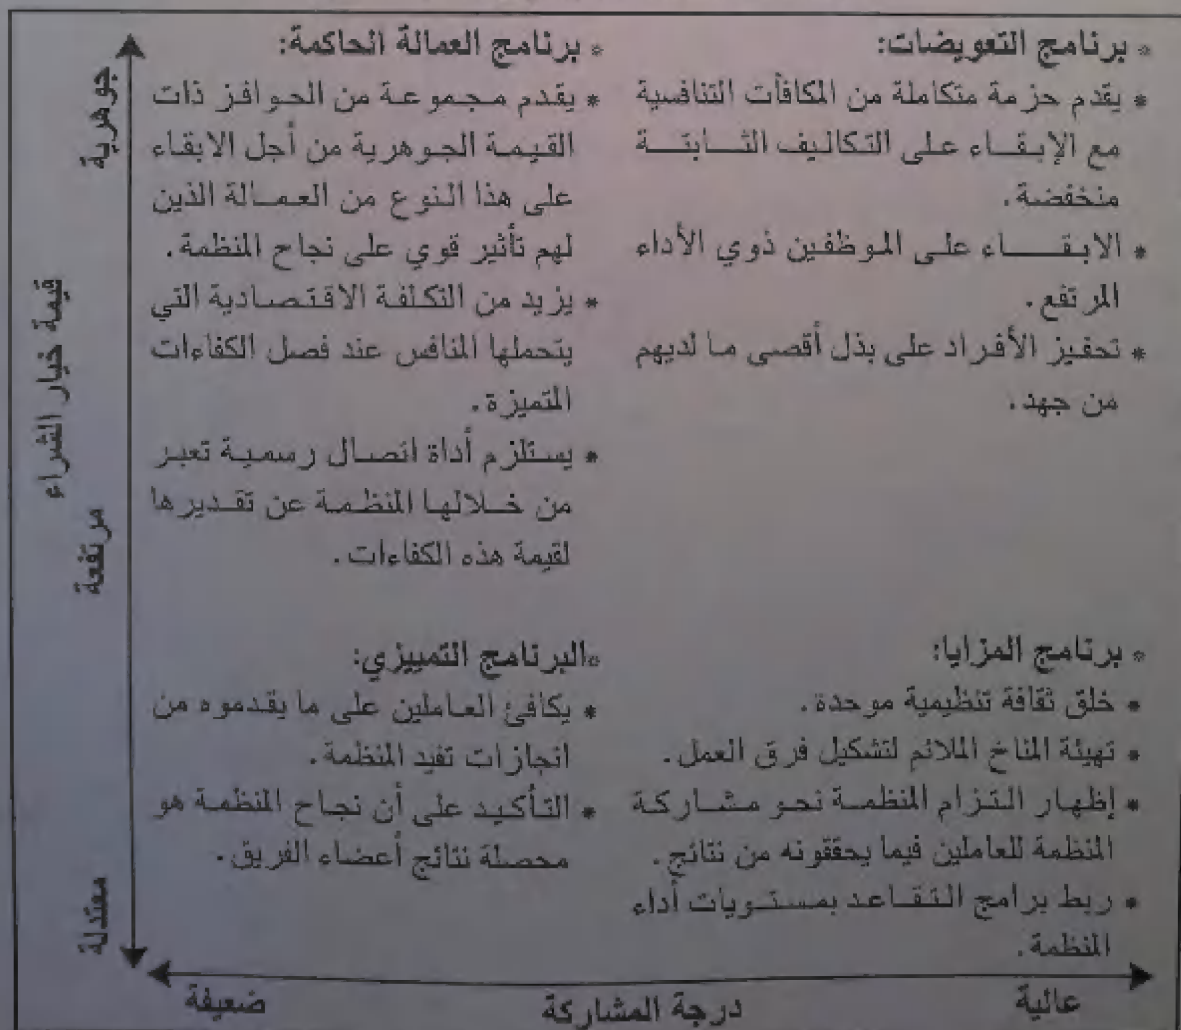 * برنامج التعويضات:
* يقدم حزمة متكاملة من المكافآت التنافسية
مع الإبقاء على التكاليف الثابتة
منخفضة.
* الابقاء على الموظفين ذوي الأداء
المرتفع.
* تحفيز الأفراد على بذل أقصى ما لديهم
من جهد.
* برنامج العمالة الحاكمة:
* يقدم مجموعة من الحوافز ذات
القيمة الجوهرية من أجل الابقاء
على هذا النوع من العمالة الذين
لهم تأثير قوي على نجاح المنظمة.
* يزيد من التكلفة الاقتصادية التي
يتحملها المنافس عند فصل الكفاءات
المتميزة.
* يستلزم أداة اتصال رسمية تعبر
من خلالها المنظمة عن تقديرها
لقيمة هذه الكفاءات.
* برنامج المزايا:
* خلق ثقافة تنظيمية موحدة.
* تهيئة المناخ الملائم لتشكيل فرق العمل.
* إظهار التزام المنظمة نحو مشاركة
المنظمة للعاملين فيما يحققونه من نتائج.
* ربط برامج التقاعد بمستويات أداء
المنظمة.
*البرنامج التمييزي:
* يكافئ العاملين على ما يقدموه من
انجازات تفيد المنظمة.
* التأكيد على أن نجاح المنظمة هو
محصلة نتائج أعضاء الفريق.
جوهرية
قيمة خيار الشراء
مرتفعة
معتدلة
عالية
درجة المشاركة
ضعيفة